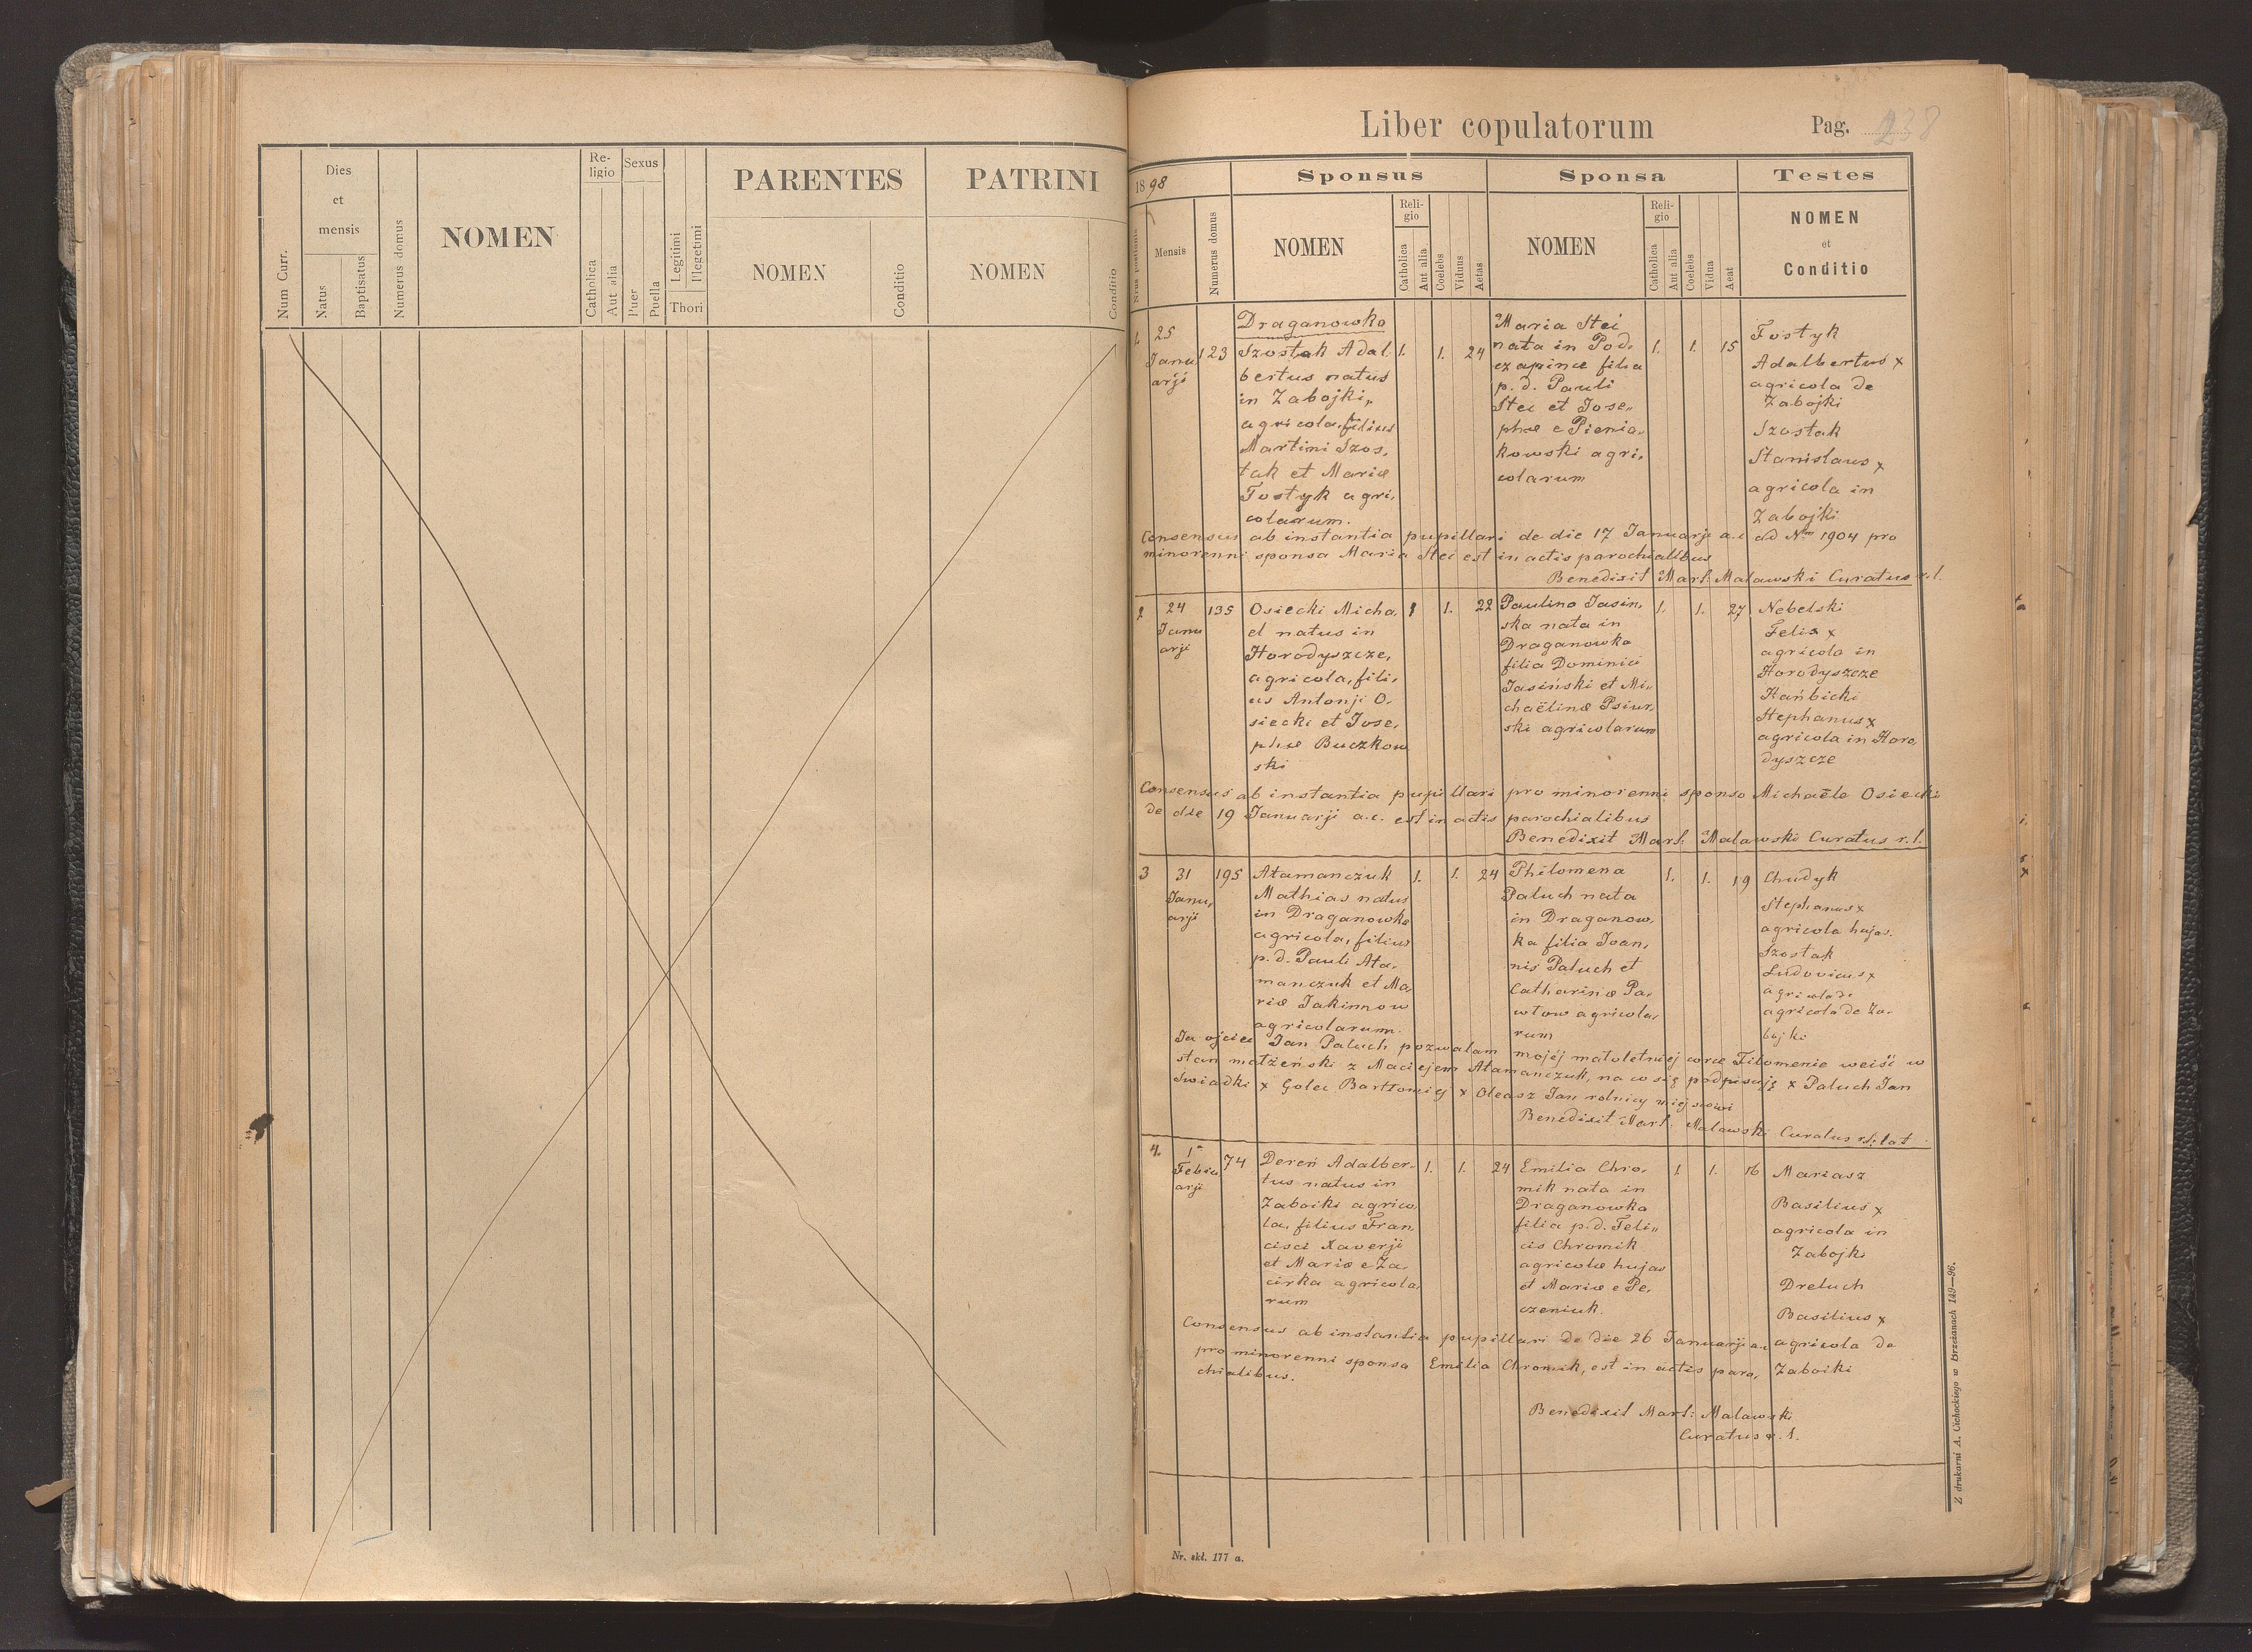 Num Curr.
Dies
et
mensis
Natus
Baptisatus
Numerus domus
NOMEN
Re-
ligio
Catholica
Aut alia
Sexus
Puer
Puella
Legitimi
Illegetimi
Thori
PARENTES
NOMEN
Conditio
PATRINI
NOMEN
Conditio
Liber copulatorum
Pag. 238
1898
Sponsus
Sponsa
Testes
Nrus positionis
Mensis
Numerus domus
NOMEN
Reli-
gio
Catholica
Aut alia
Coelebs
Viduus
Aetas
NOMEN
Reli-
gio
Catholica
Aut alia
Coelebs
Vidua
Aeat
NOMEN
et
Conditio
1.
25
Janu
arji
123
Draganowka
Szostak Adal.
bertus natus
in Zabojki,
agricola, filius
Martini Szos,
tak et Mariæ
Fostyk agri,
colarum.
1. 1. 24
Maria Stei
nata in Pod,
czapince filia
p. d. Pauli
Stei et Jose,,
phæ e Pienia,
kowski agri,
colarum
1. 1. 15
Fostyk
Adalbertus x
agricola de
Zabojki
Szostak
Stanislaus x
agricola in
Zabojki
Consensus ab instantia pupillari de die 17 Januarji a.c ad Nm 1904 pro
minorenni sponsa Maria Stei est in actis parochialibus
Benedixit Mart: Malawski Curatus r.l.
2
24
Janu
arji
135
Osiecki Micha,
el natus in
Horodyszcze,
agricola, fili,
us Antonji O,
siecki et Jose,
phæ Buczkow
ski
1 1. 22
Paulina Jasin,
ska nata in
Draganowka
filia Dominici
Jasiński et Mi,
chaëlinæ Psiur,
ski agricolarum
1. 1. 27
Nebelski
Felix x
agricola in
Horodyszcze
Hańbicki
Stephanus x
agricola in Horo,
dyszcze
Consensus ab instantia pupillari pro minorenni sponso Michaële Osiecki
de die 19 Januarji a.c. est in actis parochialibus
Benedixit Mart: Malawski Curatus r.l.
3
31
Janu,
arji
195
Atamanczuk
Mathias natus
in Draganowka
agricola, filius
p. d. Pauli Ata,
manczuk et Ma,
riæ Jakimnow
agricolarum.
1. 1. 24
Philomena
Paluch nata
in Draganow,
ka filia Joan,
nis Paluch et
Catharinæ Pa,
włow agricola,
rum
1. 1. 19
Chudyk
Stephanus x
agricola hujas.
Szostak
Ludovicus x
agricola de
agricola de Za,
bojki
Ja ojciec Jan Paluch pozwalam mojéj małoletniej corce Filomenie weiść w
stan małżeński z Maciejem Atamanczuk, na co się podpisuję x Paluch Jan
Świadki x Golec Bartłomiej x Oleasz Jan rolnicy miejscowi
Benedixit Mart: Malawski Curatus rit: lat
4.
1a
Febru
arji
74
Dereń Adalber,
tus natus in
Zaboiki agrico
la, filius Fran,
cisci Xaverji
et Mariæ e Za,
cirka agricola,
rum
1. 1. 24
Emilia Chro,
mik nata in
Draganowka
filia p. d. Feli,,
cis Chromik
agricolæ hujas
et Mariæ e Pe,
czeniuk.
1 1. 16
Mariasz
Basilius x
agricola in
Zabojki
Dreluch
Basilius x
agricola de
Zaboiki
Consensus ab instantia pupillari de die 26 Januarji a.c
pro minorenni sponsa Emilia Chromik, est in actis paro,
chialibus.
Benedixit Mart: Malawski
Curatus r. l.
Nr. skł. 177 a.
Z drukarni A. Cichockiego w Brzezanach 149—96.